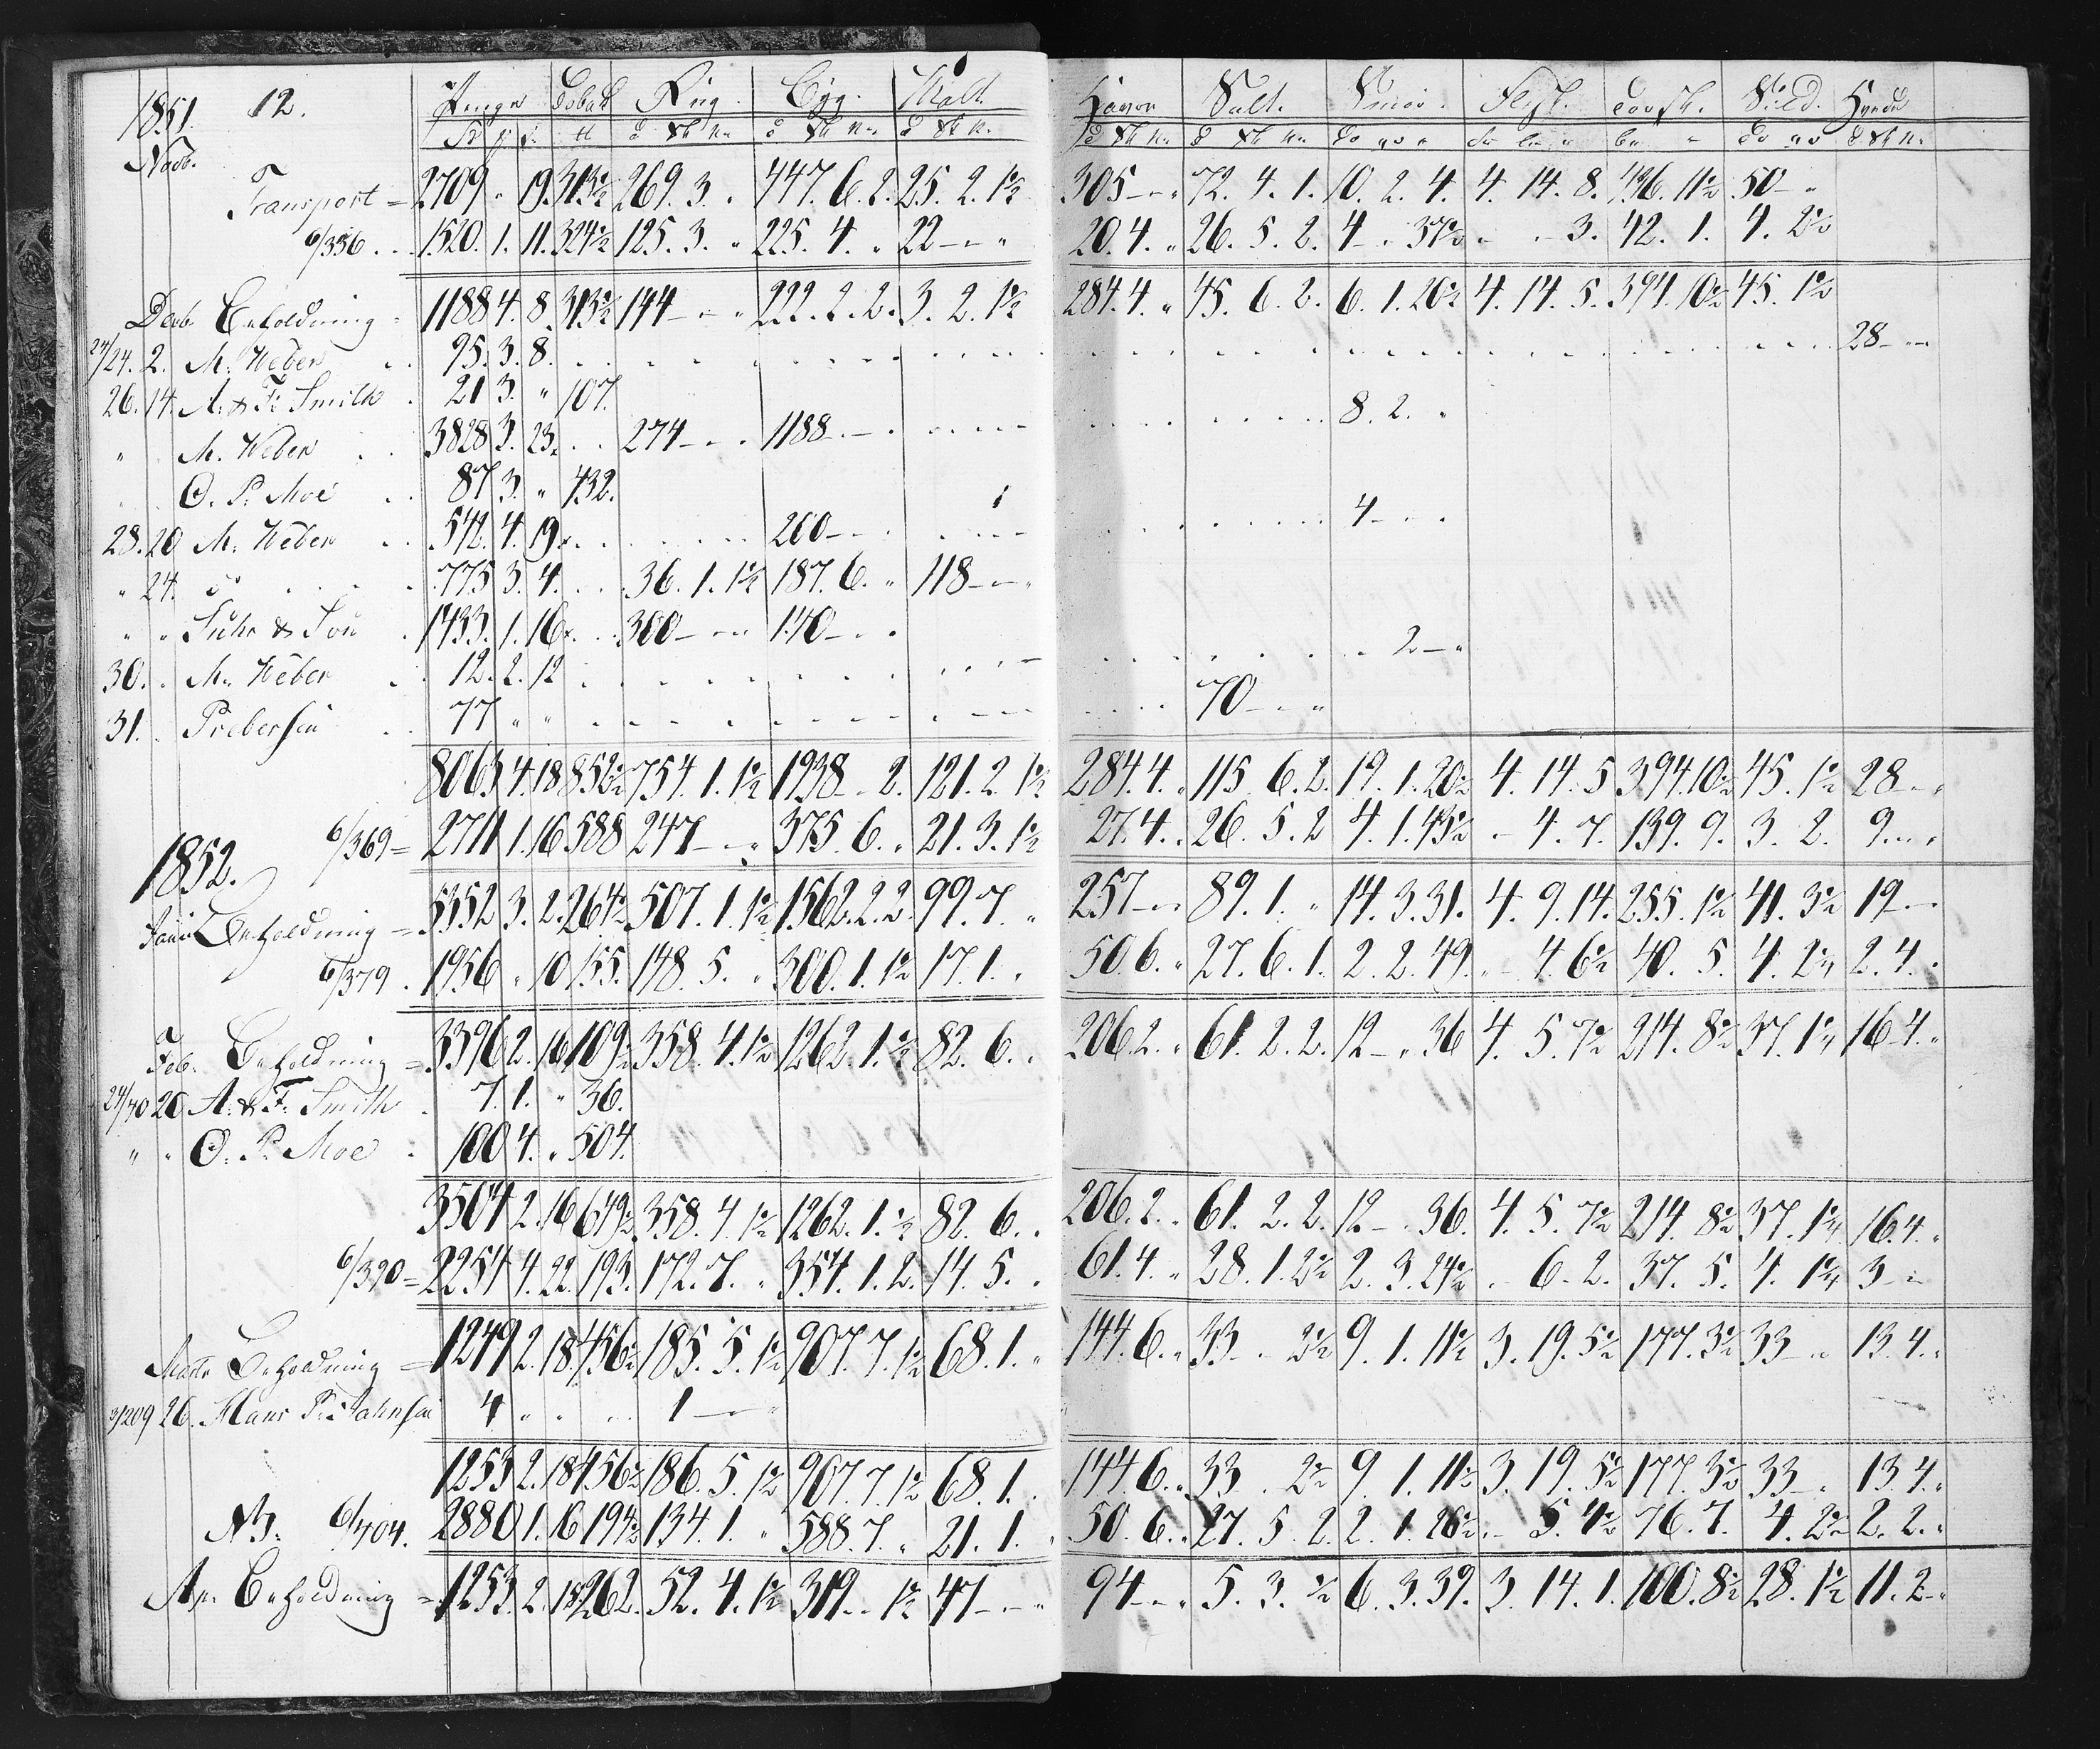 1851. 12. Penge Tobak Rug. Byg. Malt. Havre Salt. Smör. Flesk. Torsk. Sild.
Novb.
Transport = 2709 " 19. 313½ 269. 3. . 447. 6. 2. 25. 2. 1½ 305 – " " 72. 4. 1. 10. 2. 4. 4. 14. 8. 436. 11½ 50 – "
6/356 . . 1520. 1. 11. 324½ 125. 3. " 225. 4. " 22 – – " 20. 4. " 26. 5. 2. 4 – . 37½ " – . 3. 42. 1. 4. 2½
Decb. Beholdning = 1188 4. 8. 313½ 144 – – " 222. 2. 2. 3. 2. 1½ 284. 4. " 45. 6. 2. 6. 1. 20½ 4. 14. 5. 394. 10½ 45. 1½
24/24. 2. M. Weber 95. 3. 8. 28 – " –
26. 14. A. & F. Smith 21 3. " 107. 8. 2. "
" M. Weber 3828 3. 23. 274 – . . 1188 – – .
O. P. Moe 87 3. " 432.
28. 20 M. Weber 542. 4. 19 260 – – . 4 – . .
" 24. do 775 3. 4. 36. 1. 1½ 187. 6. " 118 – – "
" " Suhr & Søn 1433. 1. 16 300 – – " 140 – . .
30. . M. Weber 12. 2. 12 2 – "
31. . Prebensen 77 " " 70 – – "
8063 4. 18 852½ 754. 1. 1½ 1938 – . 2. 121. 2. 1½ 284. 4. " 115. 6. 2. 19. 1. 20½ 4. 14. 5 394. 10½ 45. 1½ 28 – .
6/369 = 2711 1. 16 588 247 – . " 375. 6. " 21. 3. 1½ 27. 4. . 26. 5. 2 4. 1. 43½ . – 4. 7. 139. 9. 3. 2. 9 – " .
1852.
Beholdning = 5352 3. 2. 264½ 507. 1. 1½ 1562. 2. 2. 99. 7. " 257 – – " 89. 1. " 14. 3. 31. 4. 9. 14. 255. 1½ 41. 3½ 19 – –
6/379 . 1956 " 10 155. 148. 5. " 300. 1. 1½ 17. 1. " 50. 6. " 27. 6. 1. 2. 2. 49. " – 4. 6½ 40. 5. 4. 2¼ 2. 4. .
Feb. Beholdning = 3396 2. 16 109½ 358. 4. 1½ 1262. 1. ½ 82. 6. . 206. 2. " 61. 2. 2. 12 – " 36 4. 5. 7½ 214. 8½ 37. 1¼ 16. 4. "
24/40 20 A. & F. Smith 7. 1. " 36.
" " O. P. Moe 100 4. " 504.
3504 2. 16 649½ 358. 4. 1½ 1262. 1. ½ 82. 6. . 206. 2. " 61. 2. 2. 12 – . 36. 4. 5. 7½ 214. 8½ 37. 1¼ 16. 4. "
6/390 = 2254 4. 22. 193. 172. 7. " 354. 1. 2. 14. 5. . 61. 4. " 28. 1. 2½ 2. 3. 24½ . – 6. 2. 37. 5. 4. 1¼ 3 – "
Beholdning = 1249 2. 18. 456½ 185. 5. 1½ 907. 7. 1½ 68. 1. " 144. 6. " 33 – . 2½ 9. 1. 11½ 3. 19. 5½ 177. 3½ 33 – " 13. 4. "
3/209 26. Hans P. Johnsen 4 " " . . . 1 – – "
1253 2. 18 456½ 186. 5. 1½ 907. 7. 1½ 68. 1. . 144. 6. " 33 – . 2½ 9. 1. 11½ 3. 19. 5½ 177. 3½ 33 – . 13. 4. "
NB. 6/404. 2880 1. 16 194½ 134. 1. " 588. 7. " 21. 1. . 50. 6. " 27. 5. 2. 2. 1. 26½ . – 5. 4½ 76. 7. 4. 2½ 2. 2. "
Apr. Beholdning = 1253. 2. 18 262. 52. 4. 1½ 319 – . 1½ 47 – – " 94 – – " 5. 3. ½ 6. 3. 39. 3. 14. 1. 100. 8½ 28. 1½ 11. 2 – "